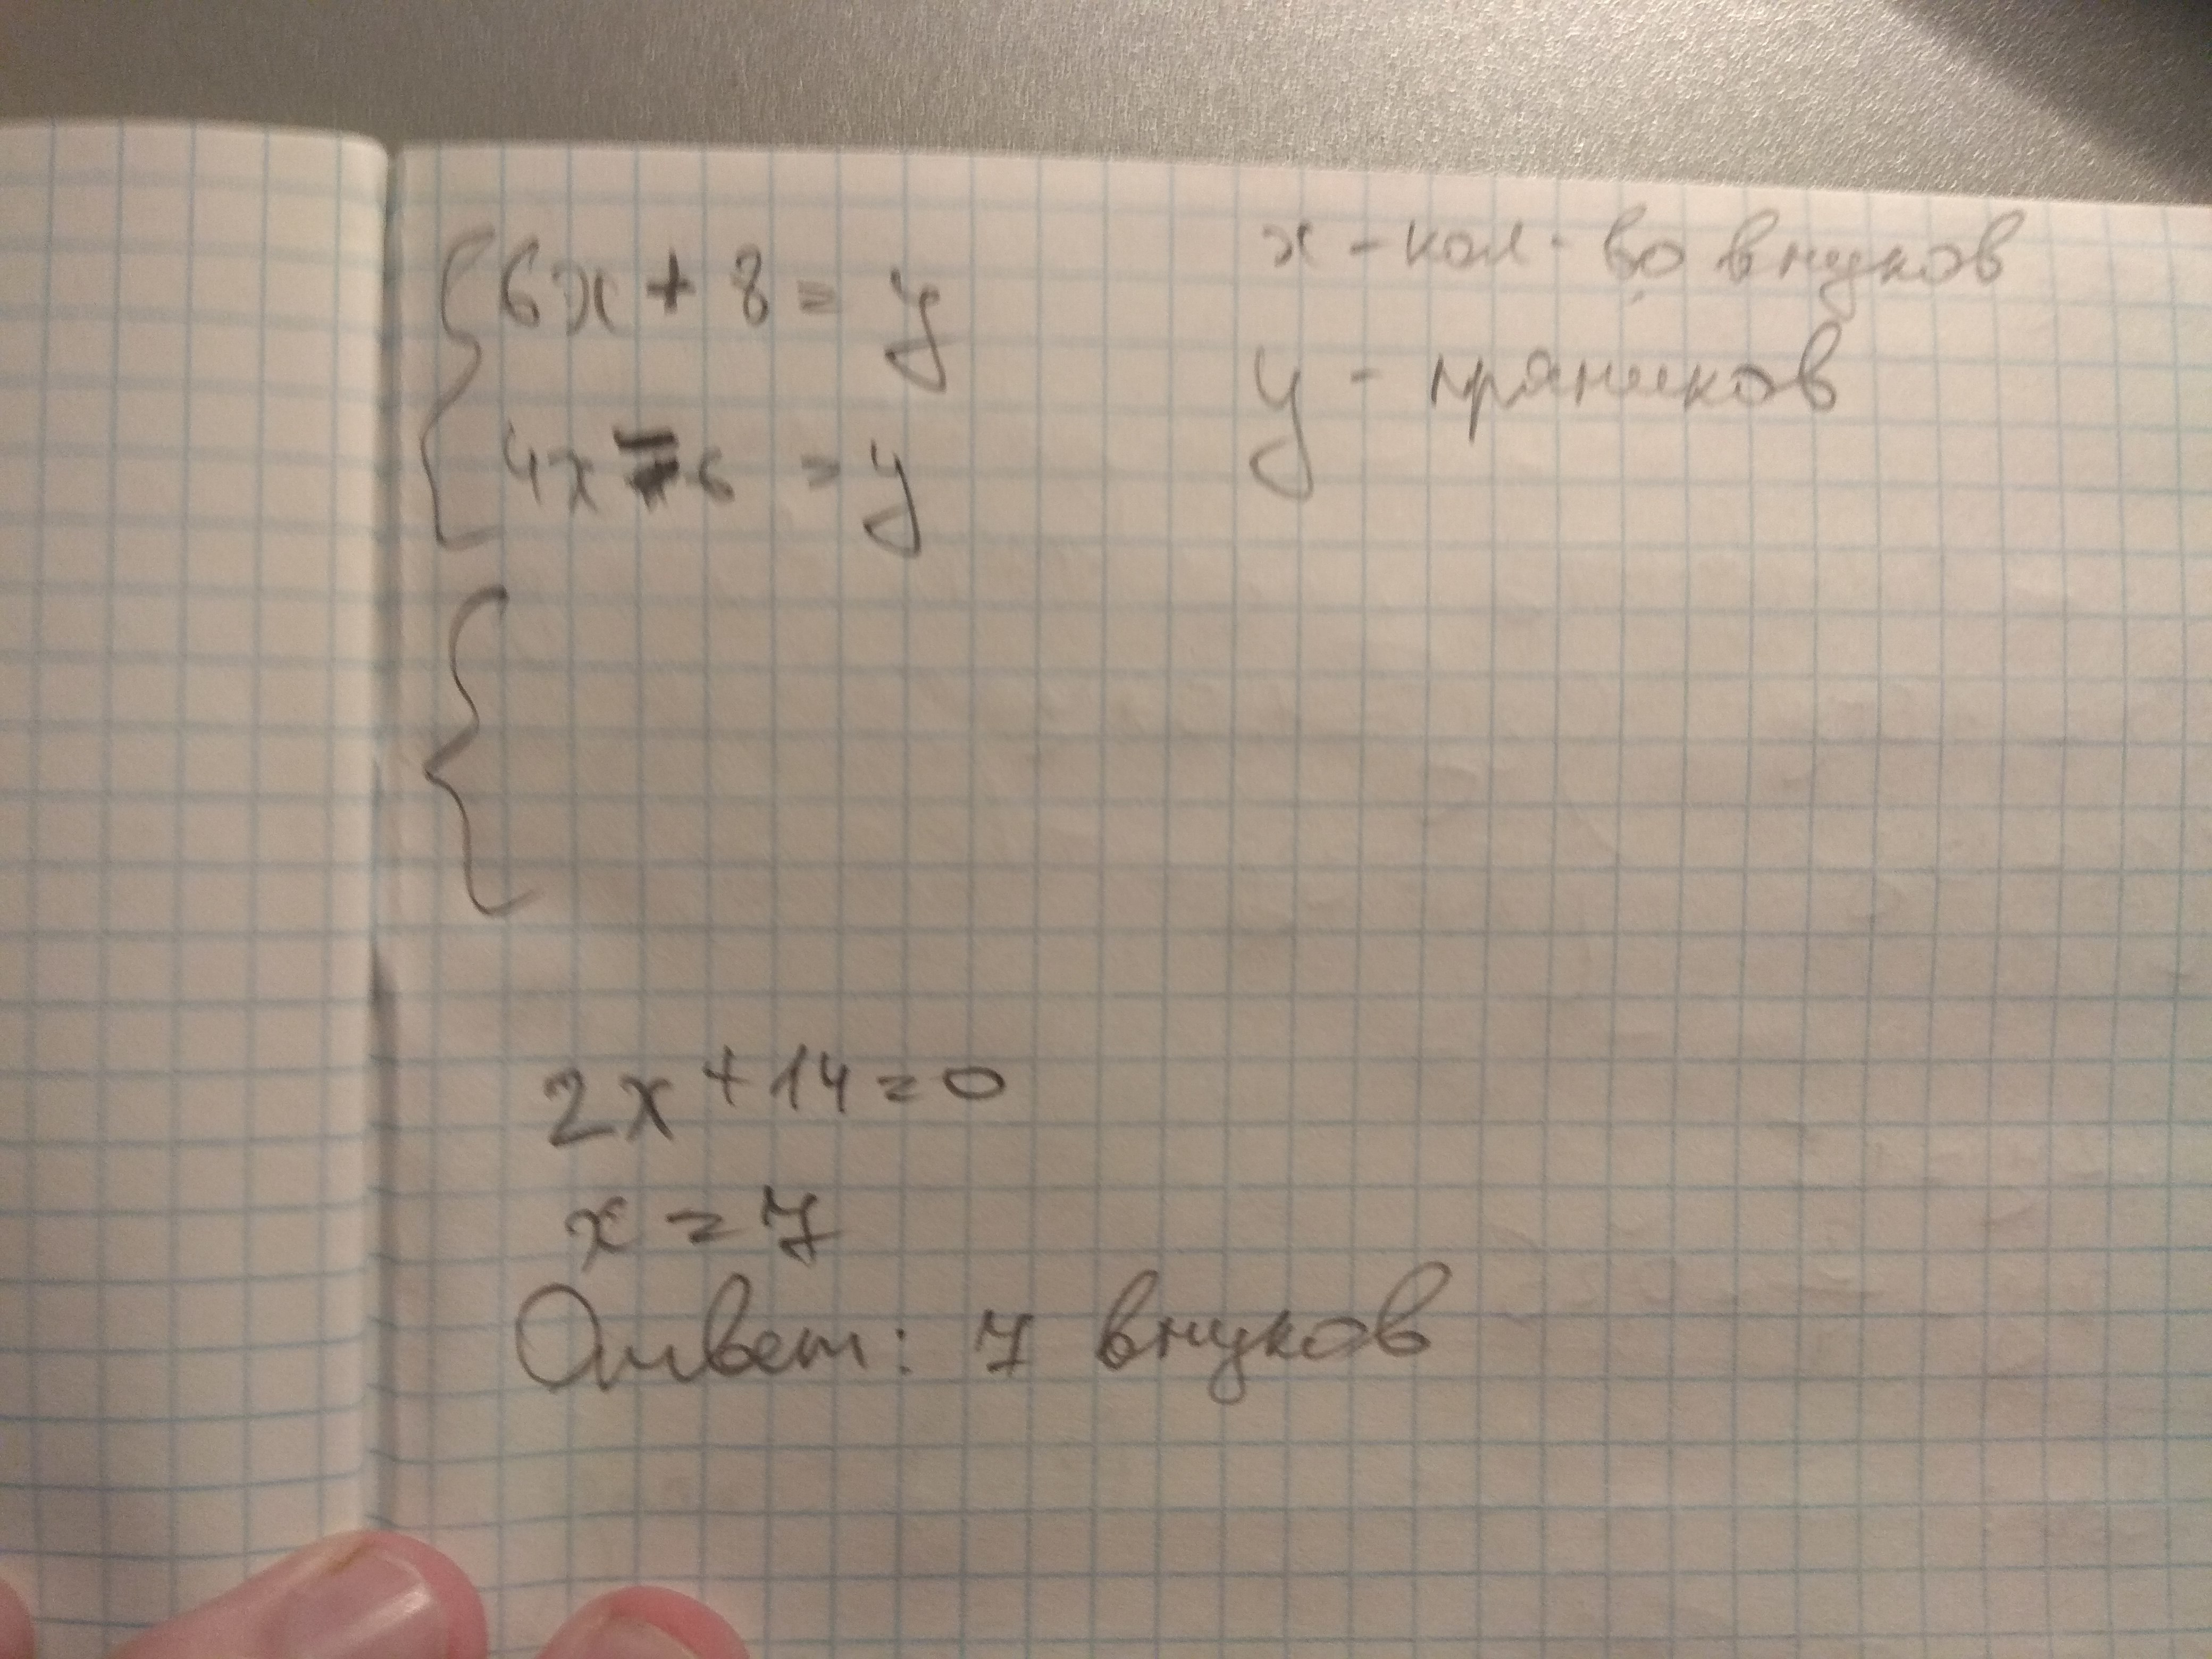 6x + 8 = y
4x - 6 = y
x - кол-во внуков
y - пряников
2x + 14 = 0
x = 7
Ответ: 7 внуков